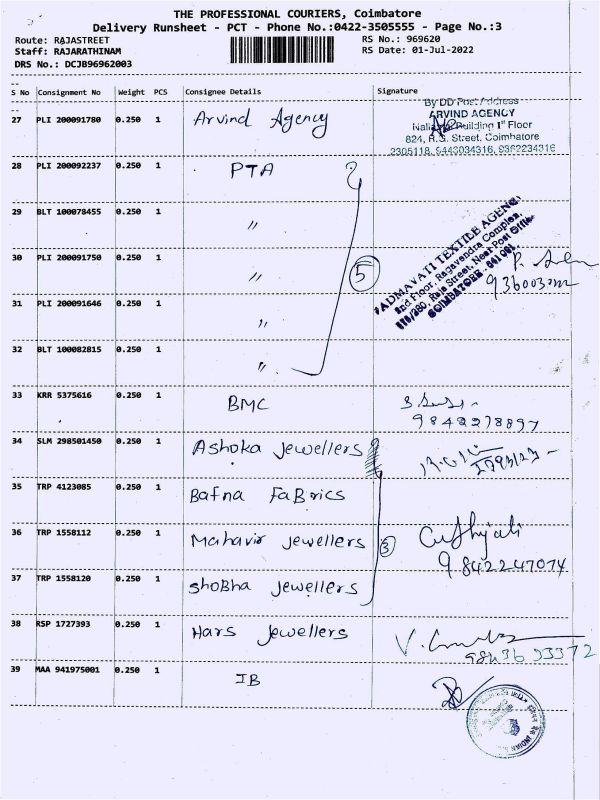 THE PROFESSIONAL COURIERS, Coimbatore
Delivery Runsheet - PCT - Phone No.:0422-3505555 - Page No.:3
Route: RAJASTREET RS No.: 969620
Staff: RAJARATHINAM RS Date: 01-Jul-2022
DRS No.: DCJB96962003
S No Consignment No Weight PCS Consignee Details Signature
By DD Post / Address
27 PLI 200091780 0.250 1 Arvind Agency ARVIND AGENCY
Building 1st Floor
824, R.G. Street, Coimbatore
2305118, 9443034316, 9362234316
28 PLI 200092237 0.250 1 PTA
29 BLT 100078455 0.250 1 "
PADMAVATI TEXTILE AGENCY
2nd Floor, Ragavendra Complex,
Raja Street, Near Post Office
COIMBATORE - 641 001.
30 PLI 200091750 0.250 1 " 5
31 PLI 200091646 0.250 1 "
32 BLT 100082815 0.250 1 "
33 KRR 5375616 0.250 1 BMC
9842278897
34 SLM 298501450 0.250 1 Ashoka Jewellers
35 TRP 4123085 0.250 1 Bafna FaBrics
36 TRP 1558112 0.250 1 Mahavir Jewellers 3
9842247074
37 TRP 1558120 0.250 1 ShoBha Jewellers
38 RSP 1727393 0.250 1 Hars Jewellers
39 MAA 941975001 0.250 1 IB